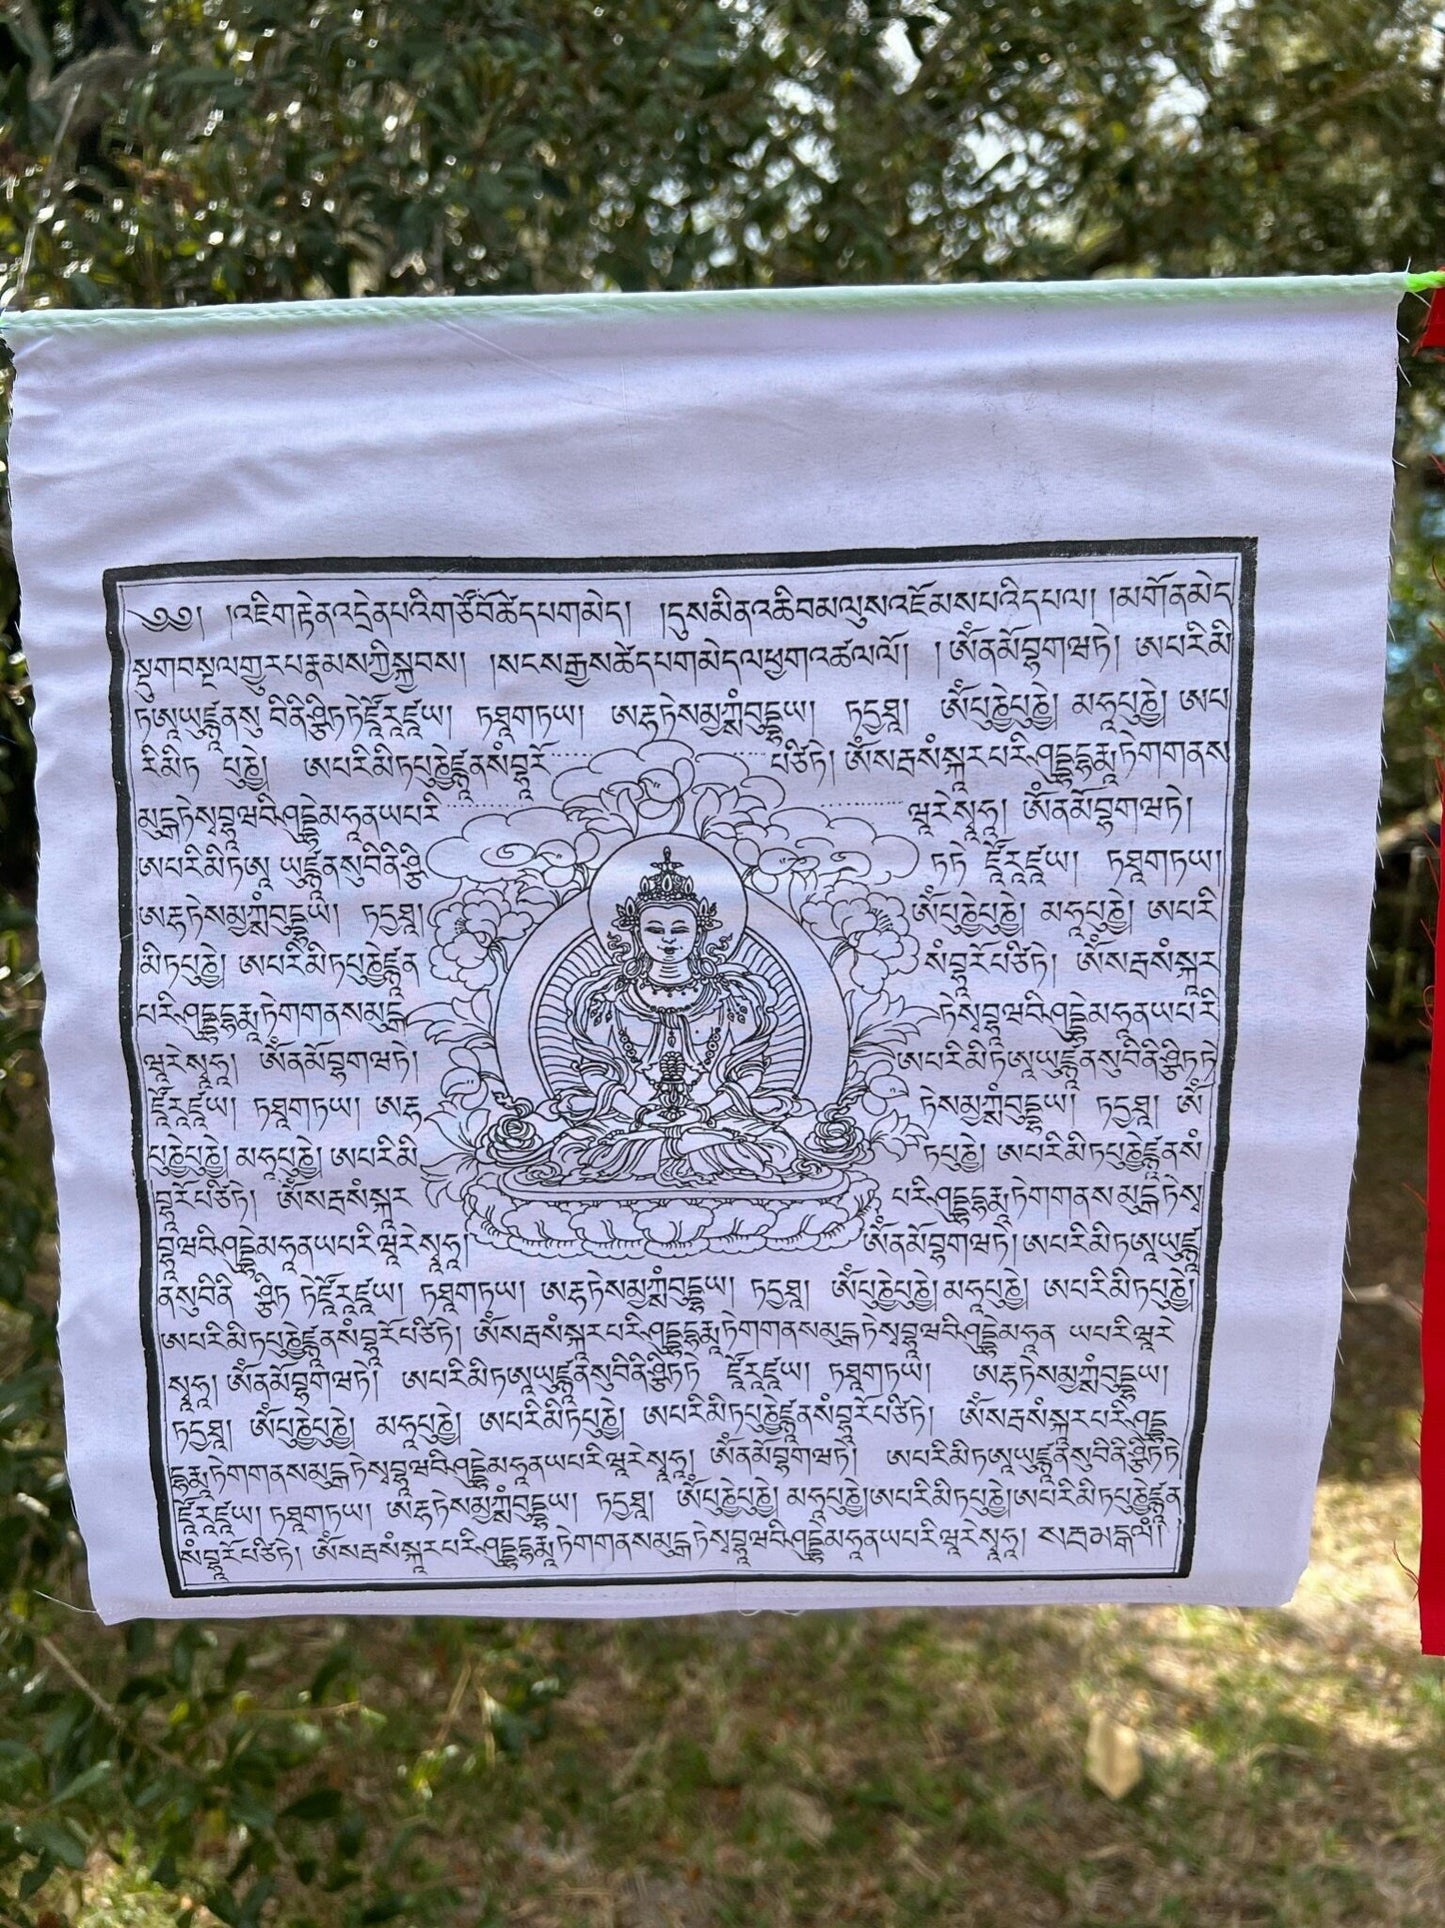 ༄༅། །འཇིག་རྟེན་འདྲེན་པའི་གཙོ་བོ་ཚེ་དཔག་མེད། །དུས་མིན་འཆི་བ་མ་ལུས་འཇོམས་པའི་དཔལ། །མགོན་མེད
སྡུག་བསྔལ་གྱུར་པ་རྣམས་ཀྱི་སྐྱབས། །སངས་རྒྱས་ཚེ་དཔག་མེད་ལ་ཕྱག་འཚལ་ལོ། །ཨོཾ་ན་མོ་བྷ་ག་ཝ་ཏེ། ཨ་པ་རི་མི
ཏ་ཨཱ་ཡུརྫྙཱ་ན་སུ་བི་ནི་ཤྩི་ཏ་ཏེ་ཛོ་རཱ་ཛཱ་ཡ། ཏ་ཐཱ་ག་ཏ་ཡ། ཨརྷ་ཏེ་སམྱཀྶཾ་བུདྡྷཱ་ཡ། ཏདྱ་ཐཱ། ཨོཾ་པུཎྱེ་པུཎྱེ། མ་ཧཱ་པུཎྱེ། ཨ་པ
རི་མི་ཏ་པུཎྱེ། ཨ་པ་རི་མི་ཏ་པུཎྱེ་ཛྙཱ་ན་སཾ་བྷཱ་རོ་པ་ཙི་ཏེ། ཨོཾ་སརྦ་སཾ་སྐཱ་ར་པ་རི་ཤུདྡྷ་དྷརྨཱ་ཏེ་ག་ག་ན་ས
མུདྒ་ཏེ་སྭ་བྷཱ་ཝ་བི་ཤུདྡྷེ་མ་ཧཱ་ན་ཡ་པ་རི་ཝཱ་རེ་སྭཱ་ཧཱ། ཨོཾ་ན་མོ་བྷ་ག་ཝ་ཏེ།
ཨ་པ་རི་མི་ཏ་ཨཱ་ཡུརྫྙཱ་ན་སུ་བི་ནི་ཤྩི་ཏ་ཏེ་ཛོ་རཱ་ཛཱ་ཡ། ཏ་ཐཱ་ག་ཏ་ཡ།
ཨརྷ་ཏེ་སམྱཀྶཾ་བུདྡྷཱ་ཡ། ཏདྱ་ཐཱ། ཨོཾ་པུཎྱེ་པུཎྱེ། མ་ཧཱ་པུཎྱེ། ཨ་པ་རི
མི་ཏ་པུཎྱེ། ཨ་པ་རི་མི་ཏ་པུཎྱེ་ཛྙཱ་ན་སཾ་བྷཱ་རོ་པ་ཙི་ཏེ། ཨོཾ་སརྦ་སཾ་སྐཱ་ར
པ་རི་ཤུདྡྷ་དྷརྨཱ་ཏེ་ག་ག་ན་ས་མུདྒ་ཏེ་སྭ་བྷཱ་ཝ་བི་ཤུདྡྷེ་མ་ཧཱ་ན་ཡ་པ་རི
ཝཱ་རེ་སྭཱ་ཧཱ། ཨོཾ་ན་མོ་བྷ་ག་ཝ་ཏེ། ཨ་པ་རི་མི་ཏ་ཨཱ་ཡུརྫྙཱ་ན་སུ་བི་ནི་ཤྩི་ཏ་ཏེ
ཛོ་རཱ་ཛཱ་ཡ། ཏ་ཐཱ་ག་ཏ་ཡ། ཨརྷ་ཏེ་སམྱཀྶཾ་བུདྡྷཱ་ཡ། ཏདྱ་ཐཱ། ཨོཾ
པུཎྱེ་པུཎྱེ། མ་ཧཱ་པུཎྱེ། ཨ་པ་རི་མི་ཏ་པུཎྱེ། ཨ་པ་རི་མི་ཏ་པུཎྱེ་ཛྙཱ་ན་སཾ
བྷཱ་རོ་པ་ཙི་ཏེ། ཨོཾ་སརྦ་སཾ་སྐཱ་ར་པ་རི་ཤུདྡྷ་དྷརྨཱ་ཏེ་ག་ག་ན་ས་མུདྒ་ཏེ་སྭ
བྷཱ་ཝ་བི་ཤུདྡྷེ་མ་ཧཱ་ན་ཡ་པ་རི་ཝཱ་རེ་སྭཱ་ཧཱ། ཨོཾ་ན་མོ་བྷ་ག་ཝ་ཏེ། ཨ་པ་རི་མི་ཏ་ཨཱ་ཡུརྫྙཱ
ན་སུ་བི་ནི་ཤྩི་ཏ་ཏེ་ཛོ་རཱ་ཛཱ་ཡ། ཏ་ཐཱ་ག་ཏ་ཡ། ཨརྷ་ཏེ་སམྱཀྶཾ་བུདྡྷཱ་ཡ། ཏདྱ་ཐཱ། ཨོཾ་པུཎྱེ་པུཎྱེ། མ་ཧཱ་པུཎྱེ། ཨ་པ་རི་མི་ཏ་པུཎྱེ།
ཨ་པ་རི་མི་ཏ་པུཎྱེ་ཛྙཱ་ན་སཾ་བྷཱ་རོ་པ་ཙི་ཏེ། ཨོཾ་སརྦ་སཾ་སྐཱ་ར་པ་རི་ཤུདྡྷ་དྷརྨཱ་ཏེ་ག་ག་ན་ས་མུདྒ་ཏེ་སྭ་བྷཱ་ཝ་བི་ཤུདྡྷེ་མ་ཧཱ་ན་ཡ་པ་རི་ཝཱ་རེ
སྭཱ་ཧཱ། ཨོཾ་ན་མོ་བྷ་ག་ཝ་ཏེ། ཨ་པ་རི་མི་ཏ་ཨཱ་ཡུརྫྙཱ་ན་སུ་བི་ནི་ཤྩི་ཏ་ཏེ་ཛོ་རཱ་ཛཱ་ཡ། ཏ་ཐཱ་ག་ཏ་ཡ། ཨརྷ་ཏེ་སམྱཀྶཾ་བུདྡྷཱ་ཡ།
ཏདྱ་ཐཱ། ཨོཾ་པུཎྱེ་པུཎྱེ། མ་ཧཱ་པུཎྱེ། ཨ་པ་རི་མི་ཏ་པུཎྱེ། ཨ་པ་རི་མི་ཏ་པུཎྱེ་ཛྙཱ་ན་སཾ་བྷཱ་རོ་པ་ཙི་ཏེ། ཨོཾ་སརྦ་སཾ་སྐཱ་ར་པ་རི་ཤུདྡྷ
དྷརྨཱ་ཏེ་ག་ག་ན་ས་མུདྒ་ཏེ་སྭ་བྷཱ་ཝ་བི་ཤུདྡྷེ་མ་ཧཱ་ན་ཡ་པ་རི་ཝཱ་རེ་སྭཱ་ཧཱ། ཨོཾ་ན་མོ་བྷ་ག་ཝ་ཏེ། ཨ་པ་རི་མི་ཏ་ཨཱ་ཡུརྫྙཱ་ན་སུ་བི་ནི་ཤྩི་ཏ་ཏེ
ཛོ་རཱ་ཛཱ་ཡ། ཏ་ཐཱ་ག་ཏ་ཡ། ཨརྷ་ཏེ་སམྱཀྶཾ་བུདྡྷཱ་ཡ། ཏདྱ་ཐཱ། ཨོཾ་པུཎྱེ་པུཎྱེ། མ་ཧཱ་པུཎྱེ། ཨ་པ་རི་མི་ཏ་པུཎྱེ། ཨ་པ་རི་མི་ཏ་པུཎྱེ་ཛྙཱ་ན
སཾ་བྷཱ་རོ་པ་ཙི་ཏེ། ཨོཾ་སརྦ་སཾ་སྐཱ་ར་པ་རི་ཤུདྡྷ་དྷརྨཱ་ཏེ་ག་ག་ན་ས་མུདྒ་ཏེ་སྭ་བྷཱ་ཝ་བི་ཤུདྡྷེ་མ་ཧཱ་ན་ཡ་པ་རི་ཝཱ་རེ་སྭཱ་ཧཱ། སརྦ་མངྒ་ལཾ། །